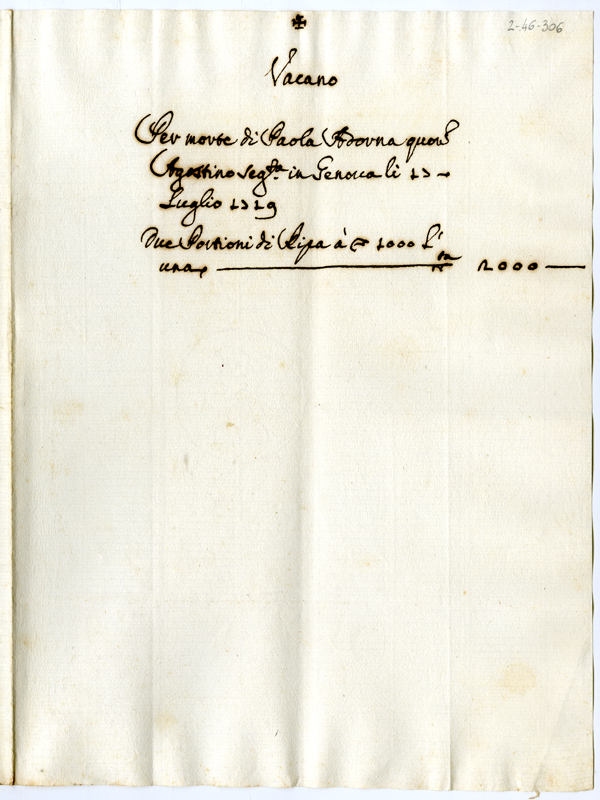 ✠
2-46-306
Vacano
Per morte di Paola Adorna quon
Agostino seg.ta in Genova li 13
Luglio
Due Portioni di Ripa à 1000 L'
una 2000